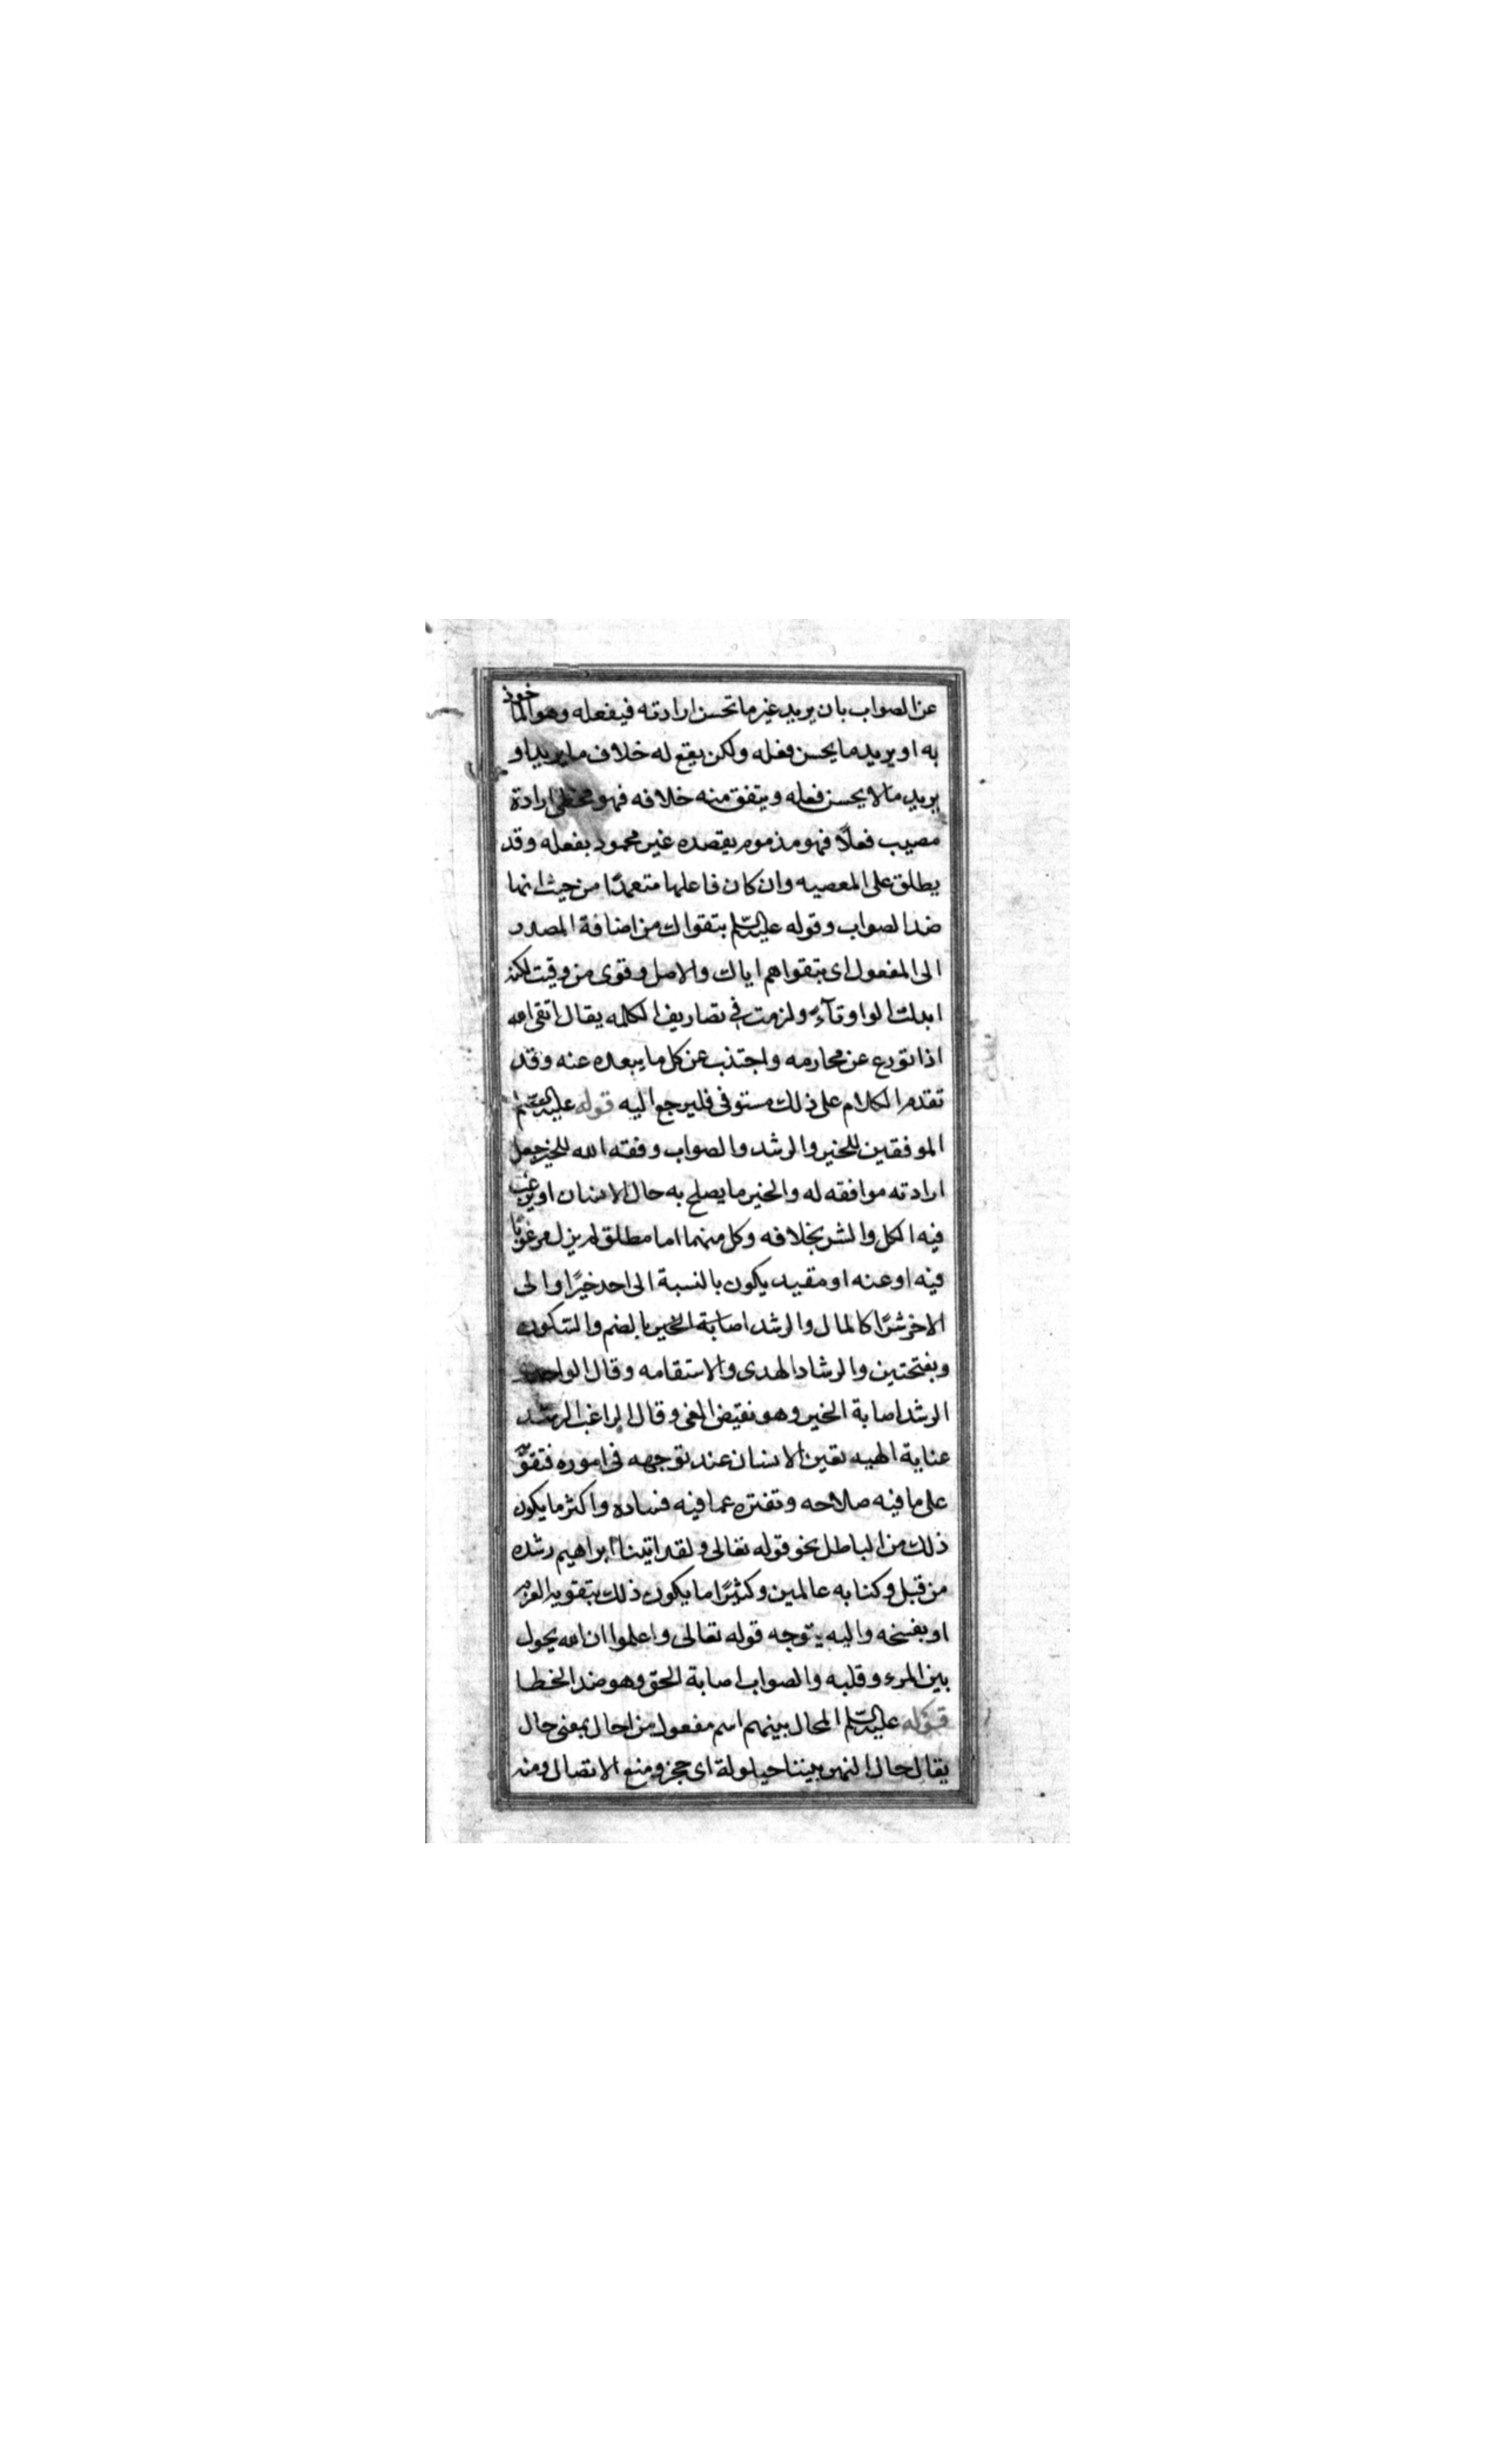 عن الصواب بان يريد غير ما تحسن ارادته فيفعله وهو الماخوذ
به او يريد ما يحسن فعله ولكن يقع له خلاف ما يريد او
يريد ما لا يحسن فعله ويتفق منه خلافه فهو مخطئ ارادة
مصيب فعلاً فهو مذموم بقصده غير محمود بفعله وقد
يطلق على المعصيه وان كان فاعلها متعمدًا من حيث انها
ضد الصواب وقوله عليه السلم بتقواك من اضافة المصدر
الى المفعول اى بتقواهم اياك والاصل وقوى من وقيت لكنه
ابدلت الواو تآءً ولزمت فى تصاريف الكلمه يقال اتقى الله
اذا تورع عن محارمه واجتنب عن كل ما يبعده عنه وقد
تقدم الكلام على ذلك مستوفى فليرجع اليه قوله عليه السلم
الموفقين للخير والرشد والصواب وفقه الله للخير جعل
ارادته موافقه له والخير ما يصلح به حال الانسان او يرغب
فيه الكل والشر بخلافه وكل منهما اما مطلق لم يزل مرغوبًا
فيه او عنه او مقيد يكون بالنسبة الى احد خيرًا والى
الاخر شرًا كالمال والرشد اصابة الخير بالضم والسكون
وبفتحتين والرشاد الهدى والاستقامه وقال الواحدى
الرشد اصابة الخير وهو نقيض الغى وقال الراغب الرشد
عناية الهيه تعين الانسان عند توجهه فى اموره فتقويه
على ما فيه صلاحه وتفتره عما فيه فساده واكثر ما يكون
ذلك من الباطل نحو قوله تعالى ولقد اتينا ابراهيم رشده
من قبل وكنا به عالمين وكثيرًا ما يكون ذلك بتقويه العزم
او بفسخه واليه يتوجه قوله تعالى واعلموا ان الله يحول
بين المرء وقلبه والصواب اصابة الحق وهو ضد الخطا
قوله عليه السلم المحال بينهم اسم مفعول من احال بمعنى حال
يقال حال النهر بيننا حيلولة اى حجز ومنع الاتصال ومنه